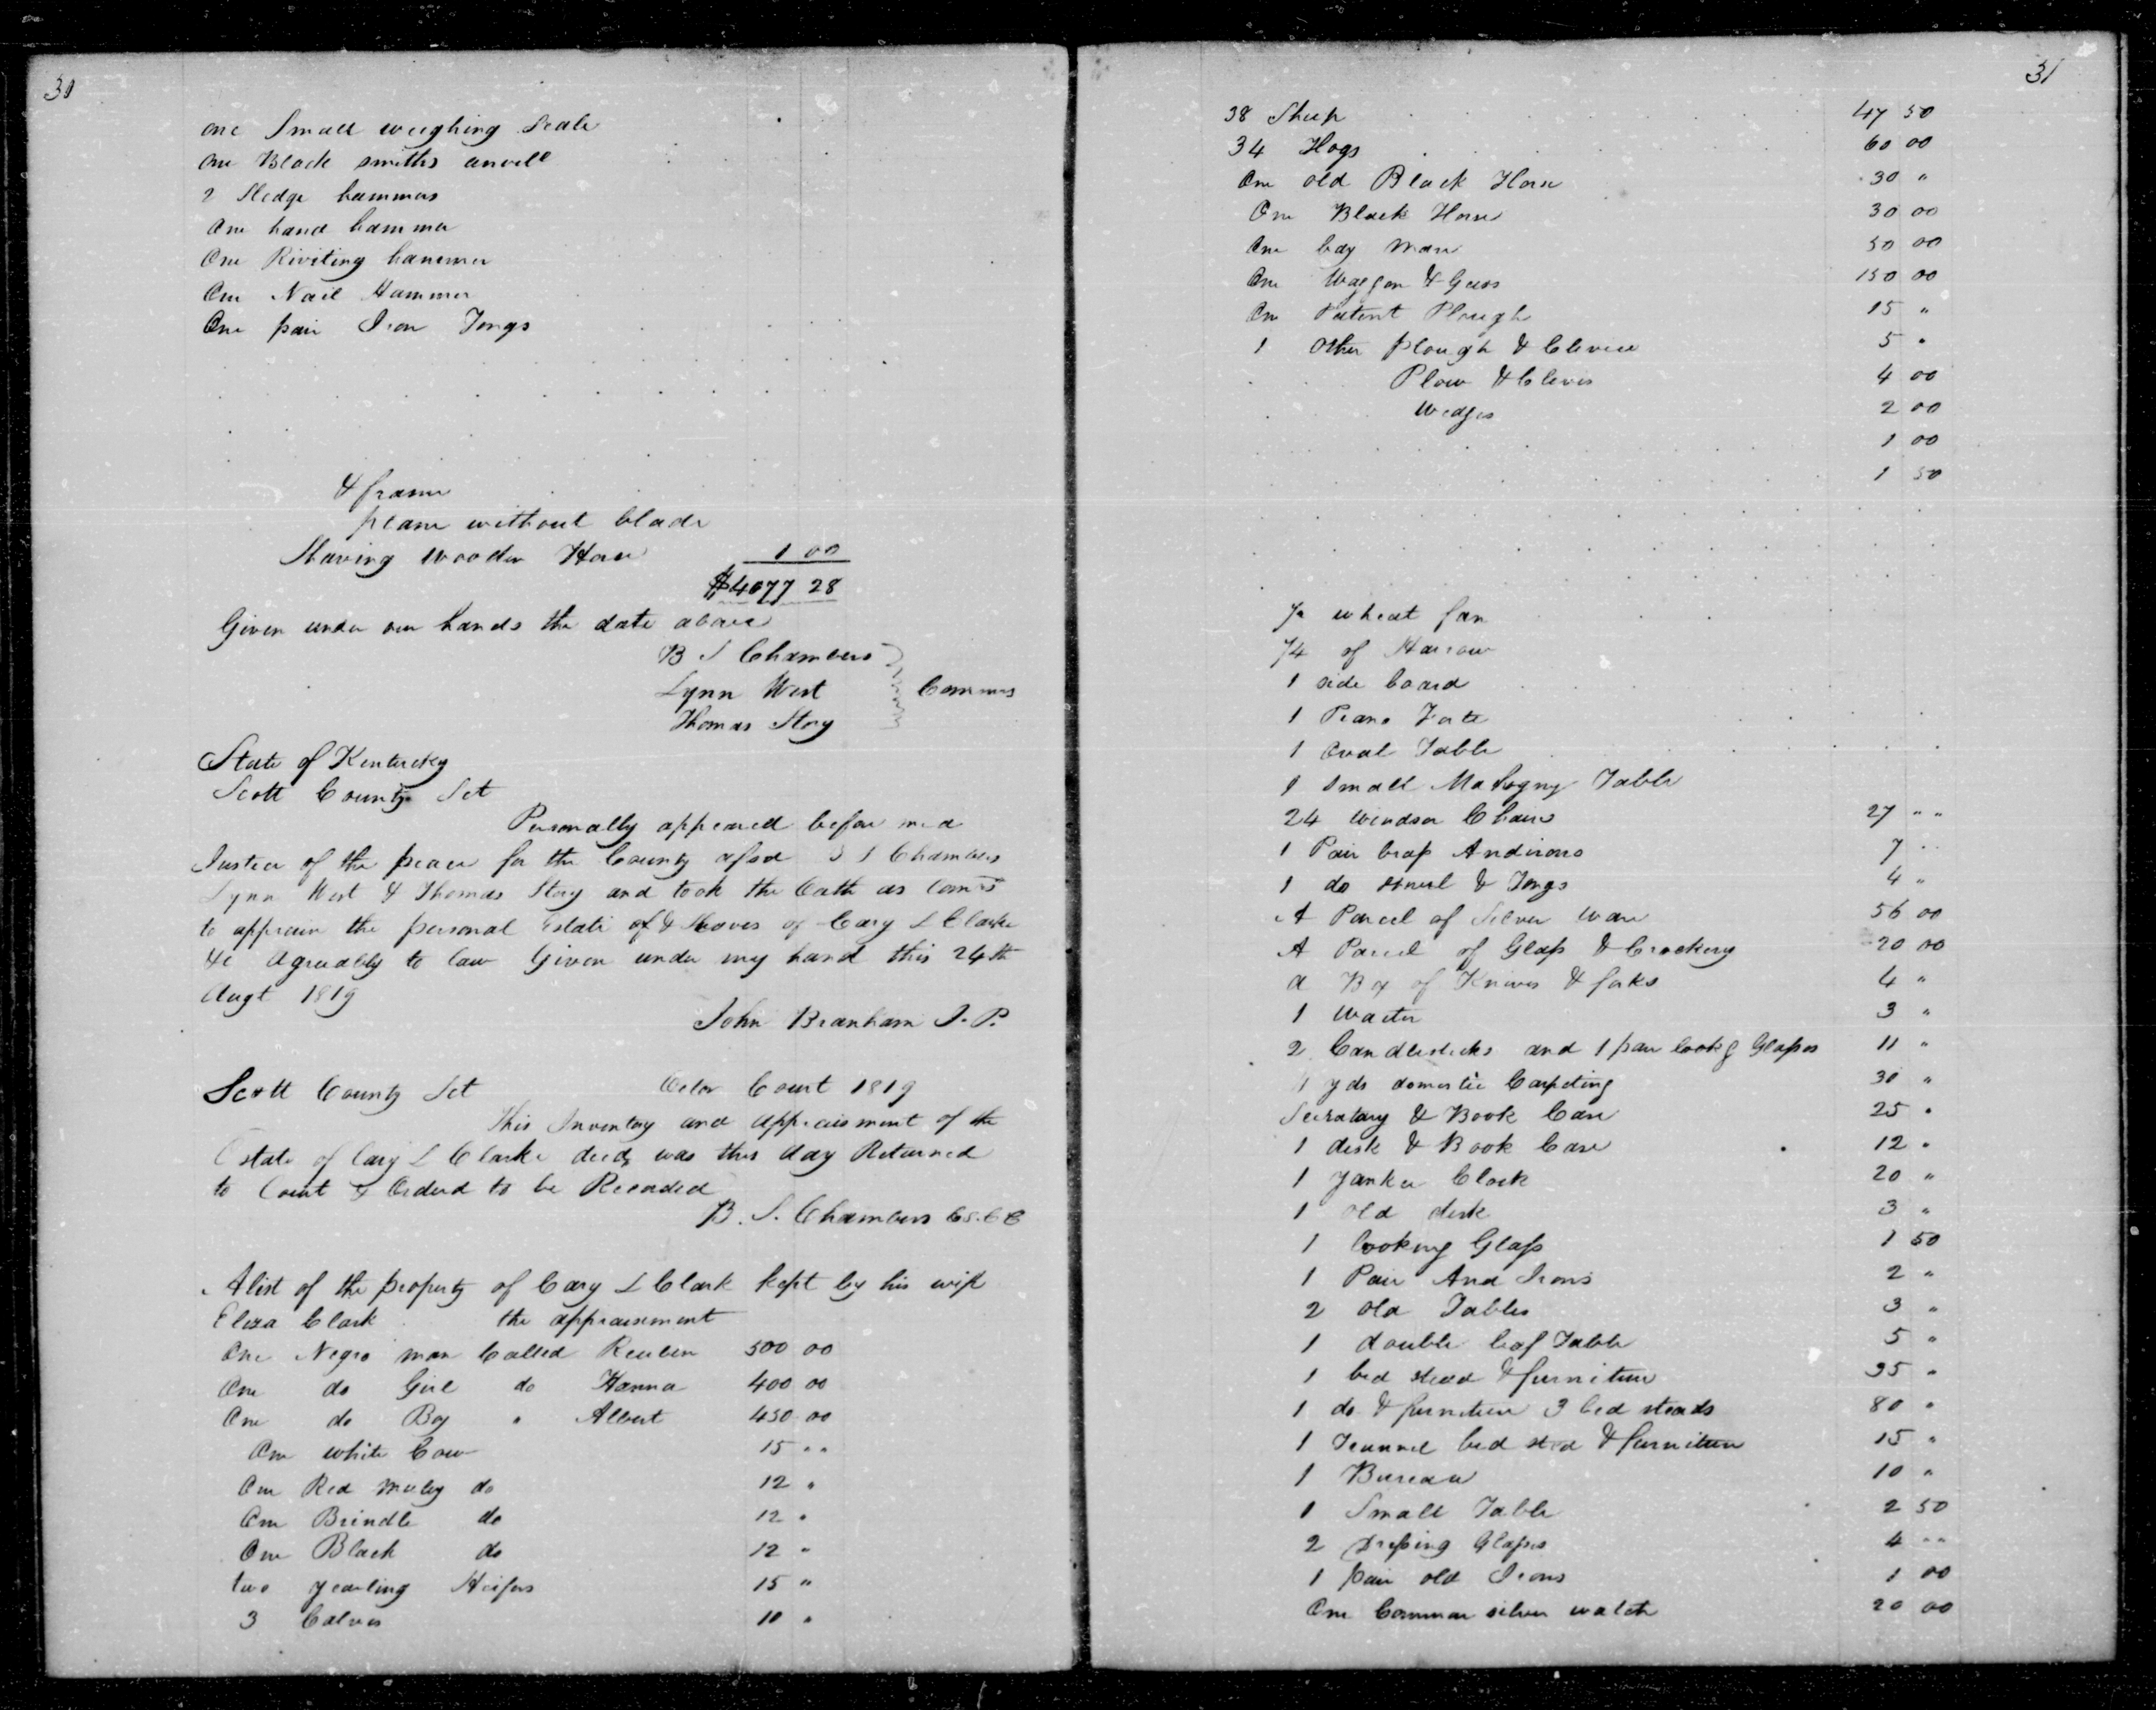 30
one Small weighing Scale
One Black smiths anvill
2 Sledge hammers
One hand hammer
One Riviting hammer
One Nail Hammer
One pair Iron Tongs
& frame
plane without blade
Shaving wooden Horse 1 00
$4077 28
Given under our hands the date above
B S Chambers
Lynn West Comms
Thomas Story
State of Kentucky
Scott County Sct
Personally appeared before me a
Justice of the peace for the County afsd B S Chambers
Lynn West & Thomas Story and took the Oath as Comrs
to appraise the personal Estate of & Slaves of Cary L Clarke
&c Agreeably to law Given under my hand this 24th
Augt 1819
John Branham J. P.
Scott County Sct Octor Court 1819
This Inventory and appraisment of the
Estate of Cary L Clarke decd was this day Returned
to Court & Orderd to be Recorded
B. S. Chambers C.S.C.C
A list of the property of Cary L Clark kept by his wife
Eliza Clark the appraisement
One Negro man Called Reuben 500 00
One do Girl do Hanna 400 00
One do Boy " Albert 450 00
One white Cow 15 " "
One Red muley do 12 "
One Brindle do 12 "
One Black do 12 "
two yearling Heifers 15 "
3 Calves 10 "
31
38 Sheep 47 50
34 Hogs 60 00
One old Black Horse 30 "
One Black Horse 30 00
One bay Mare 50 00
One Waggon & Gears 150 00
One Patent Plough 15 "
1 Other plough & Clevice 5 "
Plow & Clevis 4 00
Wedges 2 00
1 00
1 50
wheat fan
of Harrow
1 side board
1 Piano Forte
1 Oval Table
1 Small Mahogny Table
24 Windsor Chairs 27 " "
1 Pair brass Andirons 7 "
1 do shovel & Tongs 4 "
A Parcel of Silver Ware 56 00
A Parcel of Glass & Crockery 20 00
a Box of Knives & forks 4 "
1 Waiter 3 "
2 Candlesticks and 1 pair lookg Glasses 11 "
yds domestic Carpeting 30 "
Secratary & Book Case 25 "
1 desk & Book Case 12 "
1 Yankee Clock 20 "
1 old desk 3 "
1 Looking Glass 1 50
1 Pair And Irons 2 "
2 old Tables 3 "
1 double leaf Table 5 "
1 bed stead & furniture 35 "
1 do & furniture 3 bed steads 80 "
1 Trunnel bed sted & furniture 15 "
1 Bureau 10 "
1 Small Table 2 50
2 Dressing Glasses 4 " "
1 pair old Irons 1 00
One Common silver watch 20 00